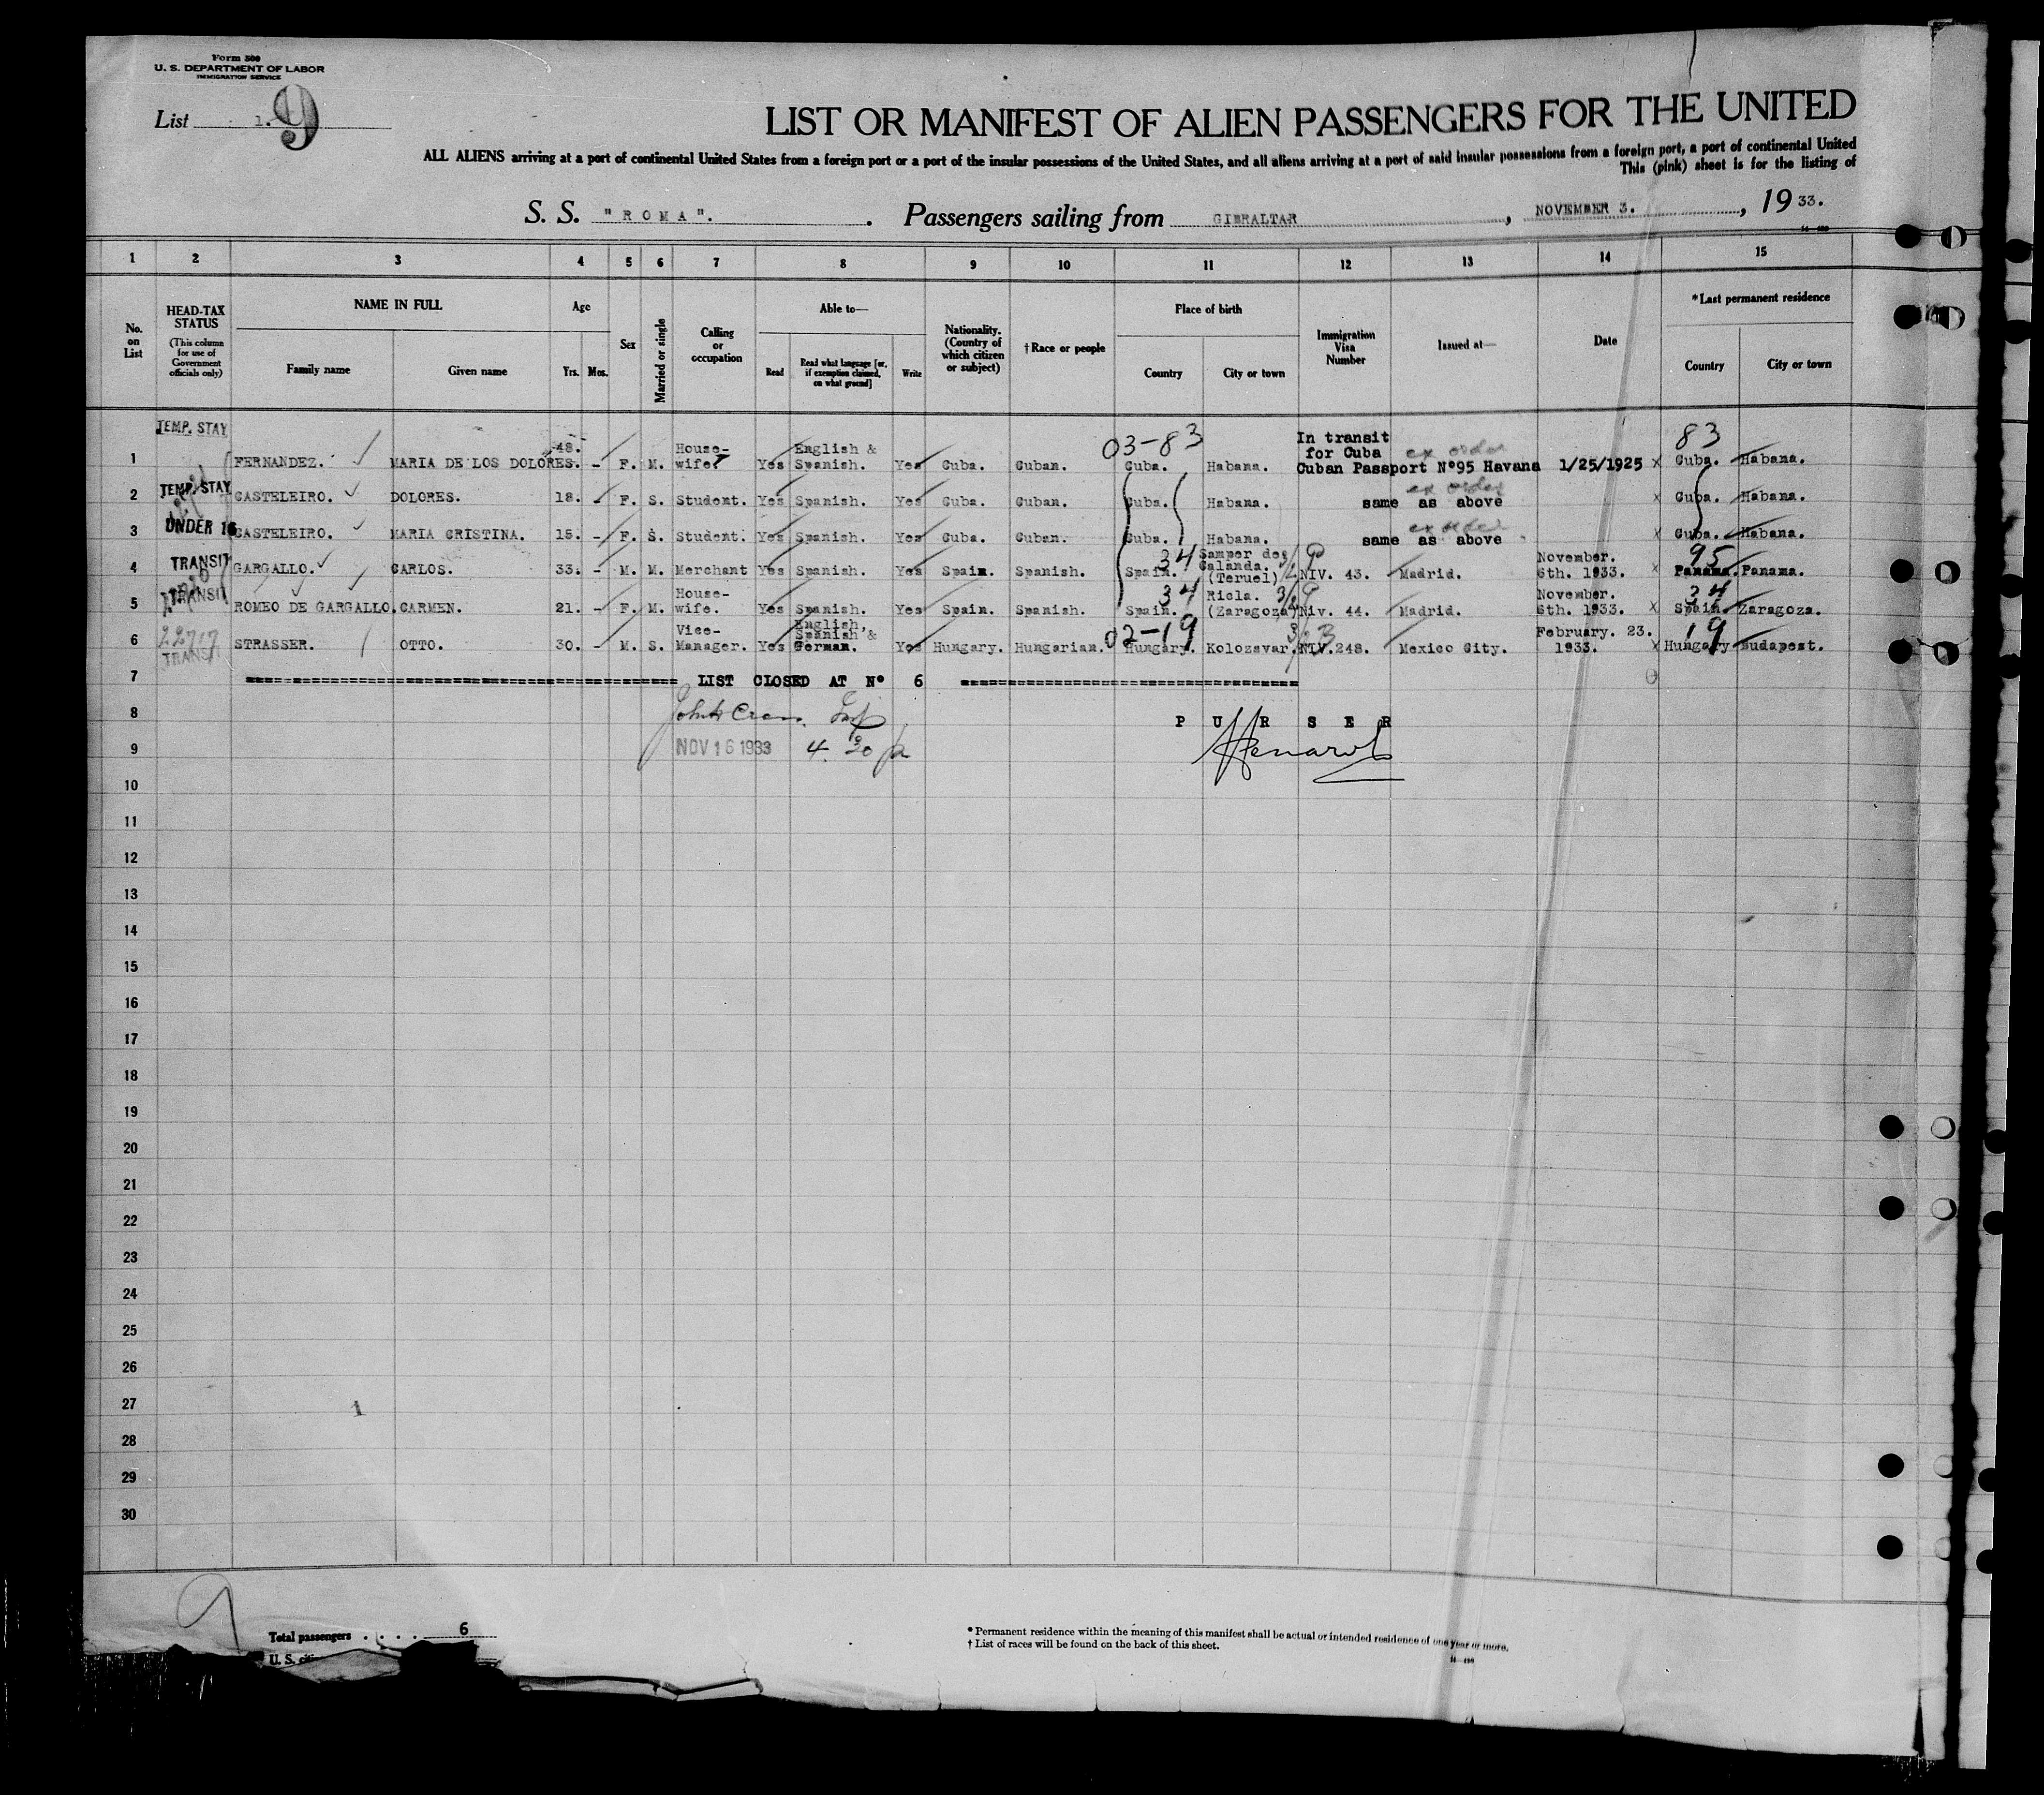 Form 500
U. S. DEPARTMENT OF LABOR
IMMIGRATION SERVICE
List 1. 9
LIST OR MANIFEST OF ALIEN PASSENGERS FOR THE UNITED
ALL ALIENS arriving at a port of continental United States from a foreign port or a port of the insular possessions of the United States, and all aliens arriving at a port of said insular possessions from a foreign port, a port of continental United
This (pink) sheet is for the listing of
S. S. "ROMA". Passengers sailing from GIBRALTAR, NOVEMBER 3., 1933.
1 2 3 4 5 6 7 8 9 10 11 12 13 14 15
No. on List
HEAD-TAX STATUS
(This column for use of Government officials only)
NAME IN FULL
Family name Given name
Age
Yrs. Mos.
Sex
Married or single
Calling or occupation
Able to—
Read Read what language [or, if exemption claimed, on what ground] Write
Nationality. (Country of which citizen or subject)
† Race or people
Place of birth
Country City or town
Immigration Visa Number
Issued at—
Date
* Last permanent residence
Country City or town
TEMP. STAY 03-83 In transit for Cuba ex order 83
1 FERNANDEZ. MARIA DE LOS DOLORES. 48. - F. M. House-wife. Yes English & Spanish. Yes Cuba. Cuban. Cuba. Habana. Cuban Passport Nº95 Havana 1/25/1925 x Cuba. Habana.
2 TEMP. STAY CASTELEIRO. DOLORES. 18. - F. S. Student. Yes Spanish. Yes Cuba. Cuban. Cuba. Habana. ex order same as above x Cuba. Habana.
3 UNDER 16 CASTELEIRO. MARIA CRISTINA. 15. - F. S. Student. Yes Spanish. Yes Cuba. Cuban. Cuba. Habana. ex order same as above x Cuba. Habana.
4 TRANSIT GARGALLO. CARLOS. 33. - M. M. Merchant Yes Spanish. Yes Spain. Spanish. 34 Spain. Samper de Calanda. (Teruel) NIV. 43. Madrid. November. 6th. 1933. x 95 Panama. Panama.
5 TRANSIT ROMEO DE GARGALLO. CARMEN. 21. - F. M. House-wife. Yes Spanish. Yes Spain. Spanish. 34 Spain. Ricla. (Zaragoza) Niv. 44. Madrid. November. 6th. 1933. x 34 Spain. Zaragoza.
6 TRANSIT STRASSER. OTTO. 30. - M. S. Vice-Manager. Yes English, Spanish & German. Yes Hungary. Hungarian. 02-19 Hungary. Kolozsvar. NIV.248. Mexico City. February. 23. 1933. x 19 Hungary Budapest.
7 LIST CLOSED AT Nº 6
8 PURSER
9 NOV 16 1933 4 30 p
10
11
12
13
14
15
16
17
18
19
20
21
22
23
24
25
26
27
28
29
30
9
Total passengers . . . . 6
* Permanent residence within the meaning of this manifest shall be actual or intended residence of one year or more.
† List of races will be found on the back of this sheet.